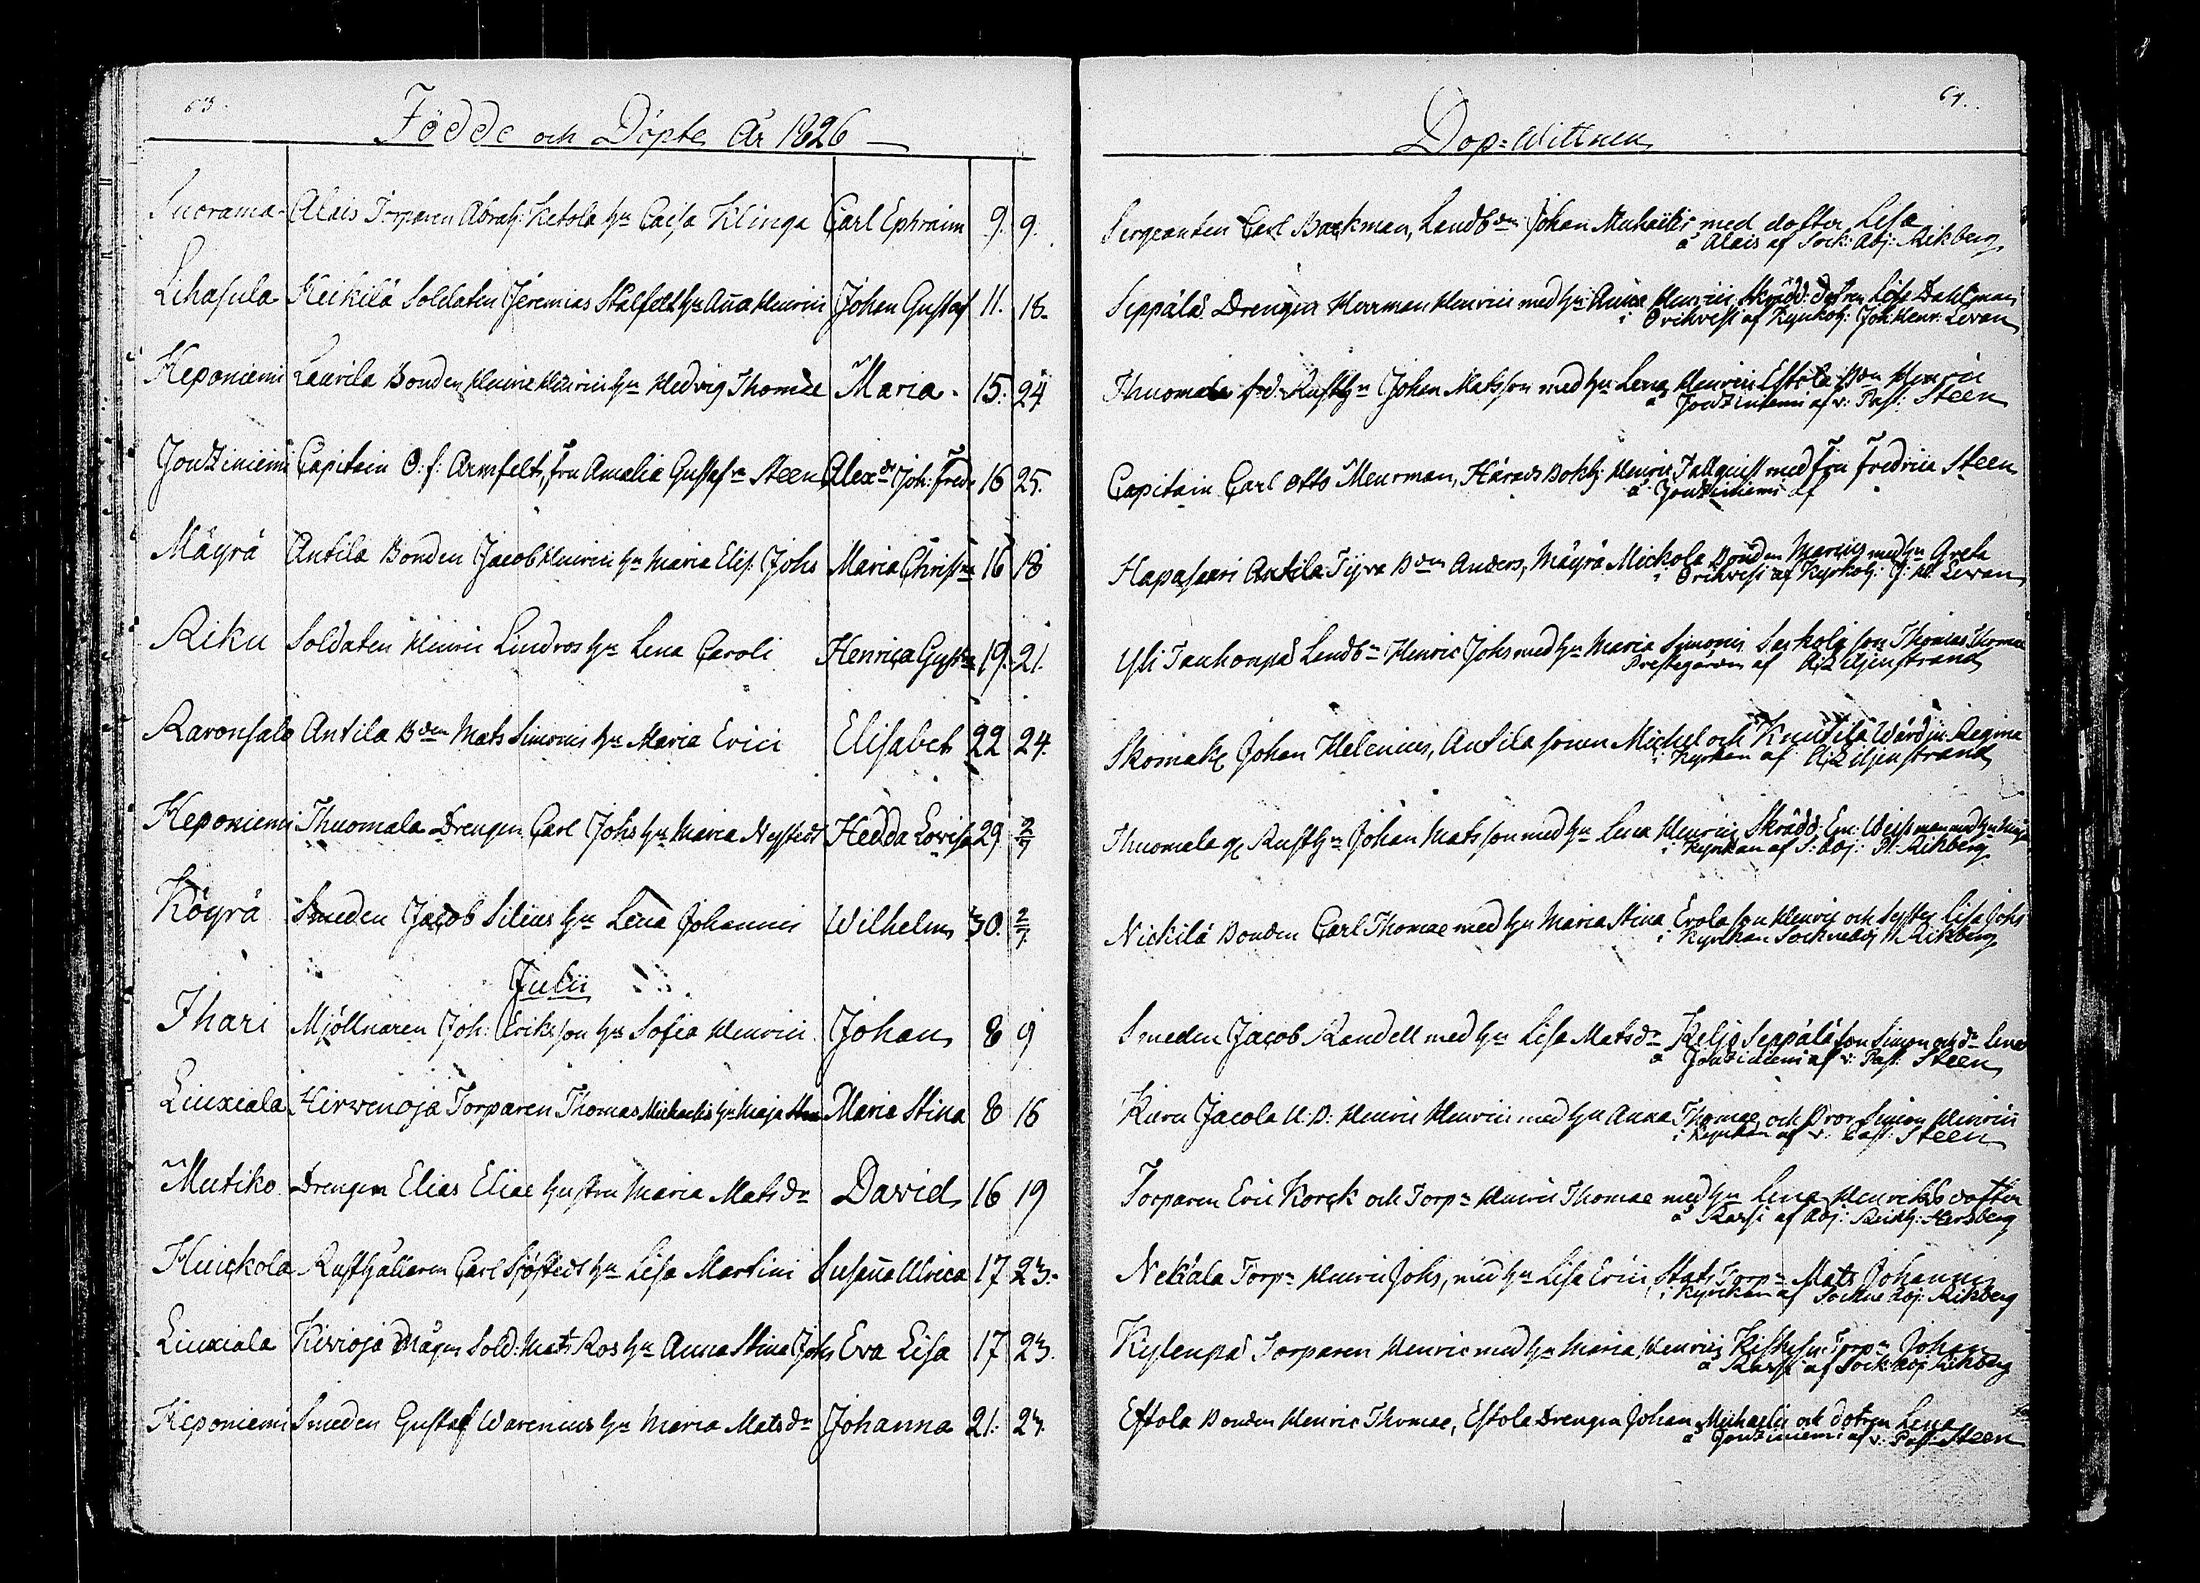 63.
Födde och Döpte År 1826
Suorama Alais Torparen Abrah: Ketola hu Cajsa Klinga Carl Ephraim 9. 9.
Lihasula Keikilä Soldaten Jeremias Stålfelt hu Anna Henrici Johan Gustaf 11. 18.
Heponiemi Laurila Bonden Henric Henrici hu Hedvig Thomæ Maria 15. 24
Joutziniemi Capitain O: f: Armfelt, fru Amalia Gustafa Steen Alexdr Joh: Fredr 16 25.
Mäyrä Antila Bonden Jacob Henrici hu Maria Elis. Johs Maria Christina 16 18
Riku Soldaten Henric Lindros hu Lena Caroli Henrica Gustva 19. 21.
Raronsalo Antila Bden Mats Simonis hu Maria Erici Elisabet 22 24.
Heponiemi Thuomala Drengen Carl Johs hu Maria Nystedt Hedda Lovisa 29 2/7
Köyrä Smeden Jacob Silius hu Lena Johannis Wilhelm 30. 2/7.
Julii
Ihari Mjöllnaren Joh: Eriksson hu Sofia Henrici Johan 8 9
Liuxiala Hirvenoja Torparen Thomas Michaelis hu Maja Stina Maria Stina 8 16
Mutiko Drengen Elias Eliae hustru Maria Matsdr David 16 19
Huickola Rusthållaren Carl Sjöstedt hu Lisa Martini Susanna Ulrica 17 23.
Liuxiala Kivioja Mågen Sold: Mats Ros hu Anna Stina Johs Eva Lisa 17 23.
Heponiemi Smeden Gustaf Warenius hu Maria Matsdr Johanna 21. 23.
64.
Dop=Wittnen
Sergeanten Carl Backman, Landbden Johan Michaelis med dotter Lisa
å Alais af Sock: Adj: Rikberg
Seppälä Drengen Herman Henrici med hu Anna Henrici, Skrädd: dotren Lisa Dahlman
i Orihvesi af Kyrkoh: Joh: Henr: Levan
Thuomala f.d. Rusthn Johan Matsson med hu Lena Henrici Eskola Bdn Henric
å Joutziniemi af v: Past: Steen
Capitain Carl Otto Meurman, Härads Bokh: Henric Tallquist med Fru Fredrica Steen
å Joutziniemi af
Hapasaari Antila Tyva Bden Anders, Mäyrä Mickola Bonden Marcus med hu Greta
i Orihvesi af Kyrkoh: J: H: Levan
Yli Tauhonpä Landbn Henric Johs med hu Maria Simonis Sarkola son Thomas Thomae
Prestgården af A: Liljenstrand
Skomak: Johan Helenius, Antila sonen Michel och Knutila Wärdin: Regina
i Kyrkan af A: Liljenstrand
Thuomala Rusthn Johan Matsson med hu Lena Henrici, Skrädd: Em: Weissman med hu
i Kyrkan af S: Adj: H: Rikberg
Nickilä Bonden Carl Thomae med hu Maria Stina Erola son Henric och syster Lisa Johs
i Kyrkan Sockneadj H: Rikberg
Smeden Jacob Randell med hu Lisa Matsdr Keljo Seppälä son Simon och dr Lena
å Joutziniemi af v: Past: Steen
Kieru Jacola U: B: Henric Henrici med hu Anna Thomae, och Bror Simon Henrici
i Kyrkan af v: Past: Steen
Torparen Eric Korck och Torpn Henric Thomae med hu Lena Henricksdotter
å Karsi af Adj: Hersberg
Nekäla Torpn Henric Johs, med hu Lisa Erici, Stats Torpn Mats Johannis
i Kyrckan af Sockne Adj: Rikberg
Kylenpä Torparen Henric med hu Maria Henrici Torpn Johan
å Karssi af Sock Adj Rikberg
Eskola Bonden Henric Thomae, Eskola Drengen Johan Michaelis och dotren Lena
å Joutziniemi af v: Past: Steen